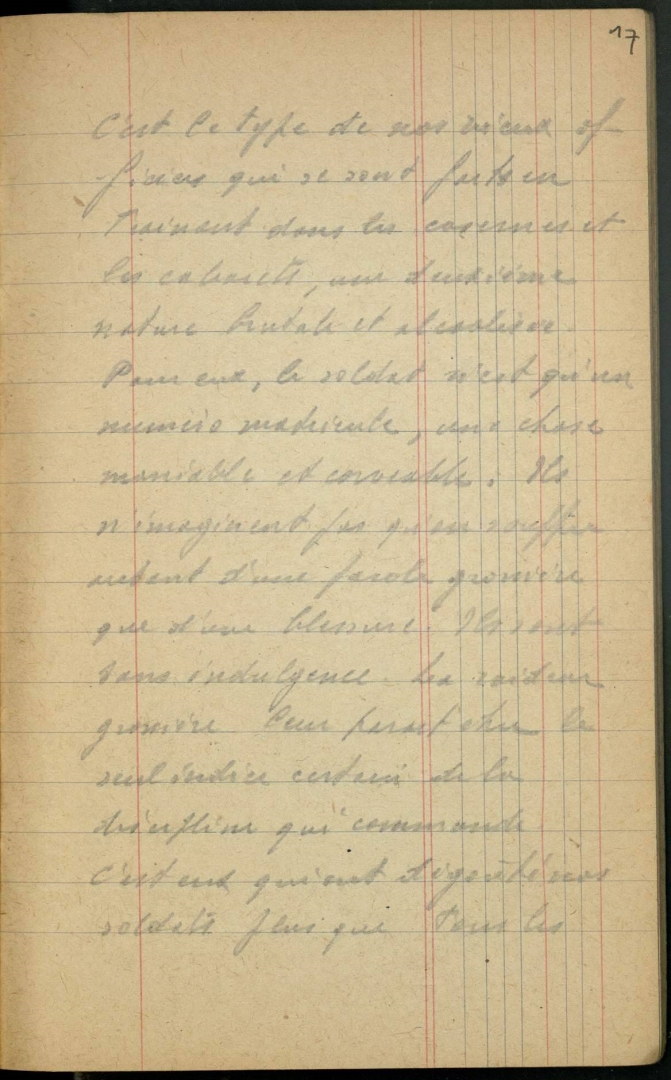 17
C'est le type de nos vieux of-
-ficiers qui se sont faits en
trainant dans les casernes et
les cabarets, une deuxième
nature brutale et alcoolique.
Pour eux, le soldat n'est qu'un
numéro matricule, une chose
maniable et corvéable. Ils
n'imaginent pas qu'on souffre
autant d'une parole grossière
que d'une blessure. Ils sont
sans indulgence. La raideur
grossière leur parait être le
seul indice certain de la
discipline qui commande.
C'est eux qui ont dégoûté nos
soldats plus que tous les